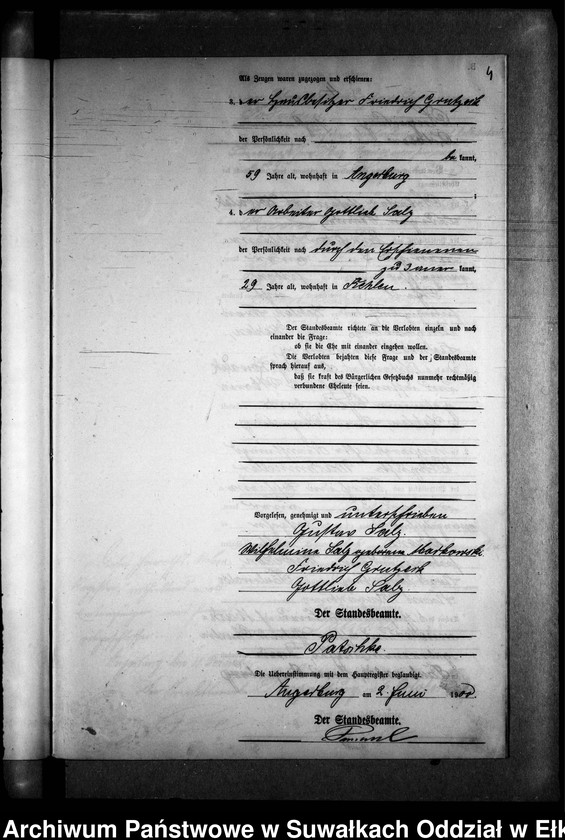 4
Als Zeugen waren zugezogen und erschienen:
3. der Hausbesitzer Friedrich Grutzeck
der Persönlichkeit nach
be kannt,
59 Jahre alt, wohnhaft in Angerburg
;
4. der Arbeiter Gottlieb Salz
der Persönlichkeit nach durch den Erschienenen
zu 3 aner kannt,
29 Jahre alt, wohnhaft in Kehlen.
Der Standesbeamte richtete an die Verlobten einzeln und nach
einander die Frage:
ob sie die Ehe mit einander eingehen wollen.
Die Verlobten bejahten diese Frage und der Standesbeamte
sprach hierauf aus,
daß sie kraft des Bürgerlichen Gesetzbuchs nunmehr rechtmäßig
verbundene Eheleute seien.
Vorgelesen, genehmigt und unterschrieben
Gustav Salz.
Wilhelmine Salz geborene Markowski
Friedrich Grutzeck
Gottlieb Salz.
Der Standesbeamte.
Patschke.
Die Uebereinstimmung mit dem Hauptregister beglaubigt.
Angerburg am 2. Juni 1900.
Der Standesbeamte.
Archiwum Państwowe w Suwałkach Oddział w Ełk